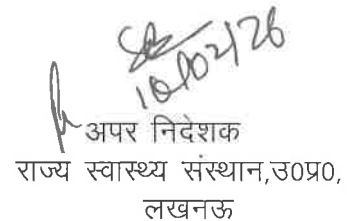 10/02/26
अपर निदेशक
राज्य स्वास्थ्य संस्थान,उ0प्र0,
लखनऊ